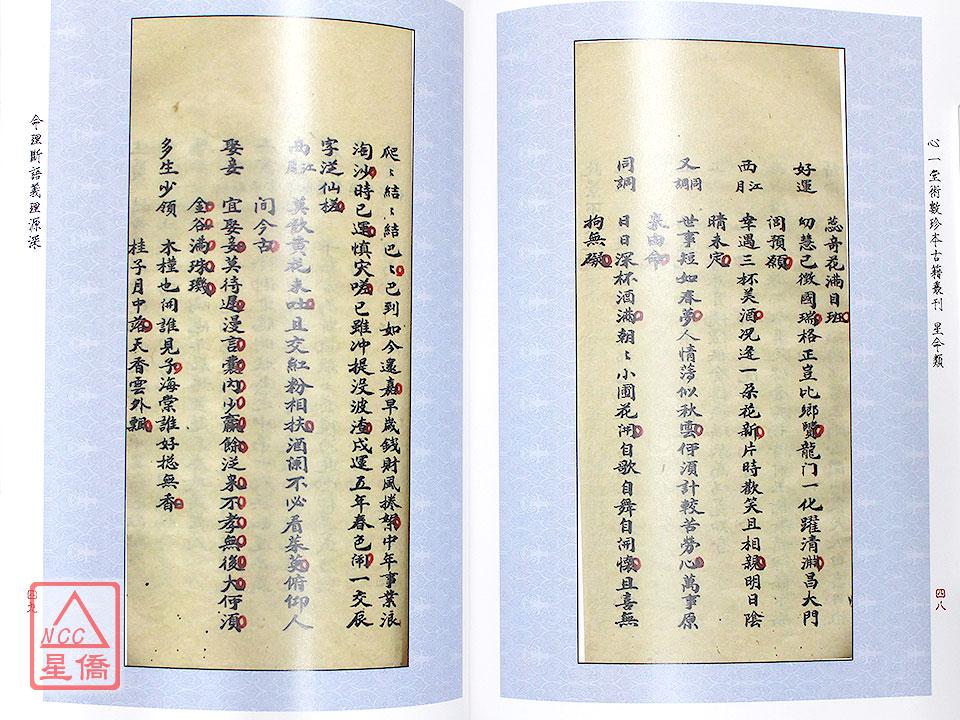 心一堂術數珍本古籍叢刊 星命類
四八
蕊奇花滿目班
好運 幼慧已徵國瑞格正豈比鄉贒龍门一化躍清淵昌大門
闾預願
西江月 幸遇三杯美酒况逢一朵花新片時歡笑且相親明日陰
晴未定
又同調 世事短如春夢人情薄似秋雲伻湏計較苦勞心萬事原
来由命
同調 日日深杯酒滿朝〻小圃花開自歌自舞自開懷且喜無
拘無礙
爬〻結〻結巴〻巴到如今還嘉早歲錢財風捲絮中年事業浪
淘沙時已運慎灾嗟已雖冲提没波渣戌運五年春色闹一交辰
字泛仙槎
西江月 莫歎黄花未吐且交紅粉相扶酒闌不必看茱萸俯仰人
间今古
娶妾 宜娶妾莫待遲漫言囊内少贏餘泛来不孝無後大伻湏
金谷滿珠璣
多生少領 木槿也開誰見子海棠誰好揔無香
桂子月中落天香雲外飄
命理斷語義理源深
四九
NCC
星僑